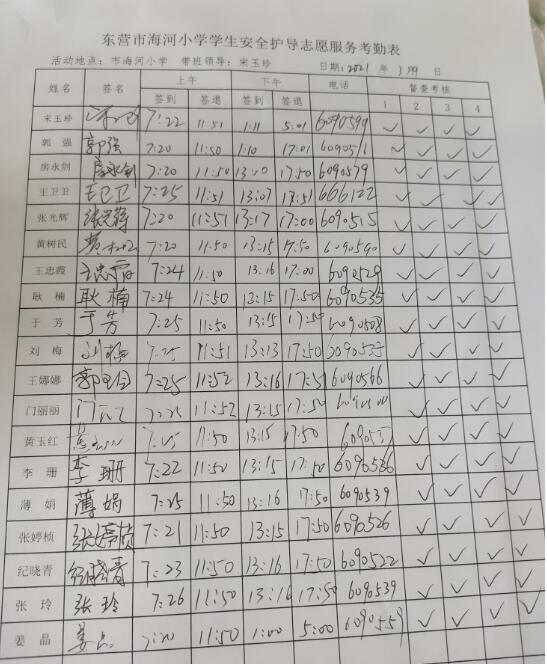 东营市海河小学学生安全护导志愿服务考勤表
活动地点：市海河小学 带班领导：宋玉珍 日期：2021 年 3月9 日
姓名 签名 上午 下午 电话 督查考核
签到 签退 签到 签退 1 2 3 4
宋玉珍 7:22 11:51 1:11 5:01 6090599 ✓ ✓ ✓ ✓
郭强 郭强 7:20 11:50 1:10 17:01 6090511 ✓ ✓ ✓ ✓
房永剑 房永剑 7:20 11:50 13:10 17:50 6090579 ✓ ✓ ✓ ✓
王卫卫 王卫卫 7:25 11:51 13:07 17:51 666122 ✓ ✓ ✓ ✓
张光辉 7:20 11:51 13:17 17:00 6090515 ✓ ✓ ✓ ✓
黄树民 7:20 11:50 13:15 17:50 6090590 ✓ ✓ ✓ ✓
王忠霞 王忠霞 7:24 11:50 13:16 17:00 6090529 ✓ ✓ ✓ ✓
耿楠 耿楠 7:24 11:50 13:15 17:50 6090535 ✓ ✓ ✓ ✓
于芳 于芳 7:25 11:50 13:15 17:50 6090508 ✓ ✓ ✓ ✓
刘梅 刘梅 7:25 11:51 13:13 17:50 ✓ ✓ ✓ ✓
王娜娜 7:25 11:52 13:16 17:51 6090566 ✓ ✓ ✓ ✓
门丽丽 7:25 11:52 13:15 17:50 ✓ ✓ ✓ ✓
黄玉红 11:50 13:15 17:50 ✓ ✓ ✓ ✓
李珊 李珊 7:22 11:50 13:15 17:50 6090536 ✓ ✓ ✓ ✓
薄娟 薄娟 7:25 11:50 13:16 17:50 6090539 ✓ ✓ ✓ ✓
张婷桢 张婷桢 7:21 11:50 13:15 17:50 6090526 ✓ ✓ ✓ ✓
纪晓青 纪晓青 7:23 11:50 13:16 17:50 6090522 ✓ ✓ ✓ ✓
张玲 张玲 7:26 11:50 13:16 17:50 6090539 ✓ ✓ ✓ ✓
姜晶 姜晶 7:20 11:50 1:00 5:00 6090559 ✓ ✓ ✓ ✓